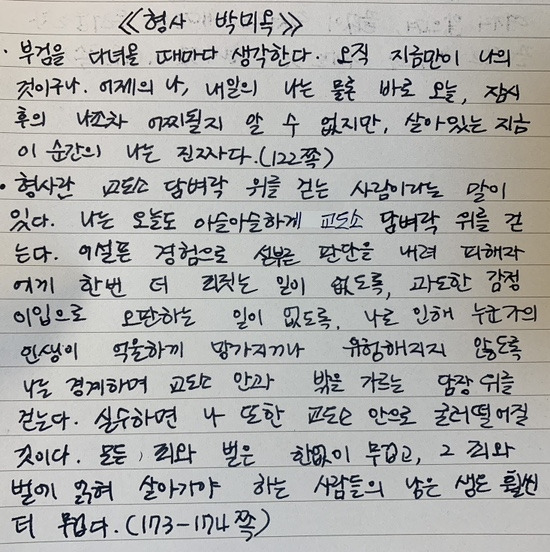 ≪형사 박미옥≫
· 부검을 다녀올 때마다 생각한다. 오직 지금만이 나의
것이구나. 어제의 나, 내일의 나는 물론 바로 오늘, 잠시
후의 나조차 어찌될지 알 수 없지만, 살아있는 지금
이 순간의 나는 진짜다.(122쪽)
· 형사란 교도소 담벼락 위를 걷는 사람이라는 말이
있다. 나는 오늘도 아슬아슬하게 교도소 담벼락 위를 걷
는다. 어설픈 경험으로 섣부른 판단을 내려 피해자
에게 한번 더 죄짓는 일이 없도록, 과도한 감정
이입으로 오판하는 일이 없도록, 나로 인해 누군가의
인생이 억울하게 망가지거나 위험해지지 않도록
나는 경계하며 교도소 안과 밖을 가르는 담장 위를
걷는다. 실수하면 나 또한 교도소 안으로 굴러떨어질
것이다. 모든 죄와 벌은 한없이 무겁고, 그 죄와
벌에 얽혀 살아가야 하는 사람들의 남은 생도 훨씬
더 무겁다.(173-174쪽)